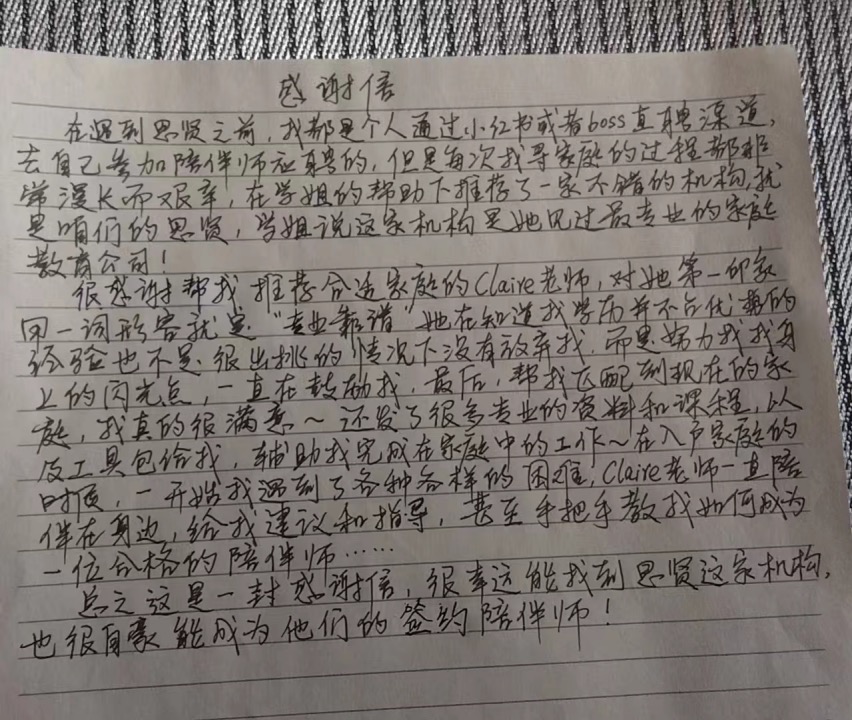 感谢信
在遇到思贤之前，我都是个人通过小红书或者boss直聘渠道，
去自己参加陪伴师应聘的，但是每次找寻家庭的过程都非
常漫长而艰辛，在学姐的帮助下推荐了一家不错的机构，就
是咱们的思贤，学姐说这家机构是她见过最专业的家庭
教育公司！
很感谢帮我推荐合适家庭的Claire老师，对她第一印象
用一词形容就是“专业靠谱”她在知道我学历并不占优势的
经验也不是很出挑的情况下没有放弃我，而是努力找我身
上的闪光点，一直在鼓励我，最后，帮我匹配到现在的家
庭，我真的很满意～还发了很多专业的资料和课程，以
及工具包给我，辅助我完成在家庭中的工作～在入户家庭的
时候，一开始我遇到了各种各样的困难，Claire老师一直陪
伴在身边，给我建议和指导，甚至手把手教我如何成为
一位合格的陪伴师……
总之这是一封感谢信，很幸运能找到思贤这家机构，
也很自豪能成为他们的签约陪伴师！